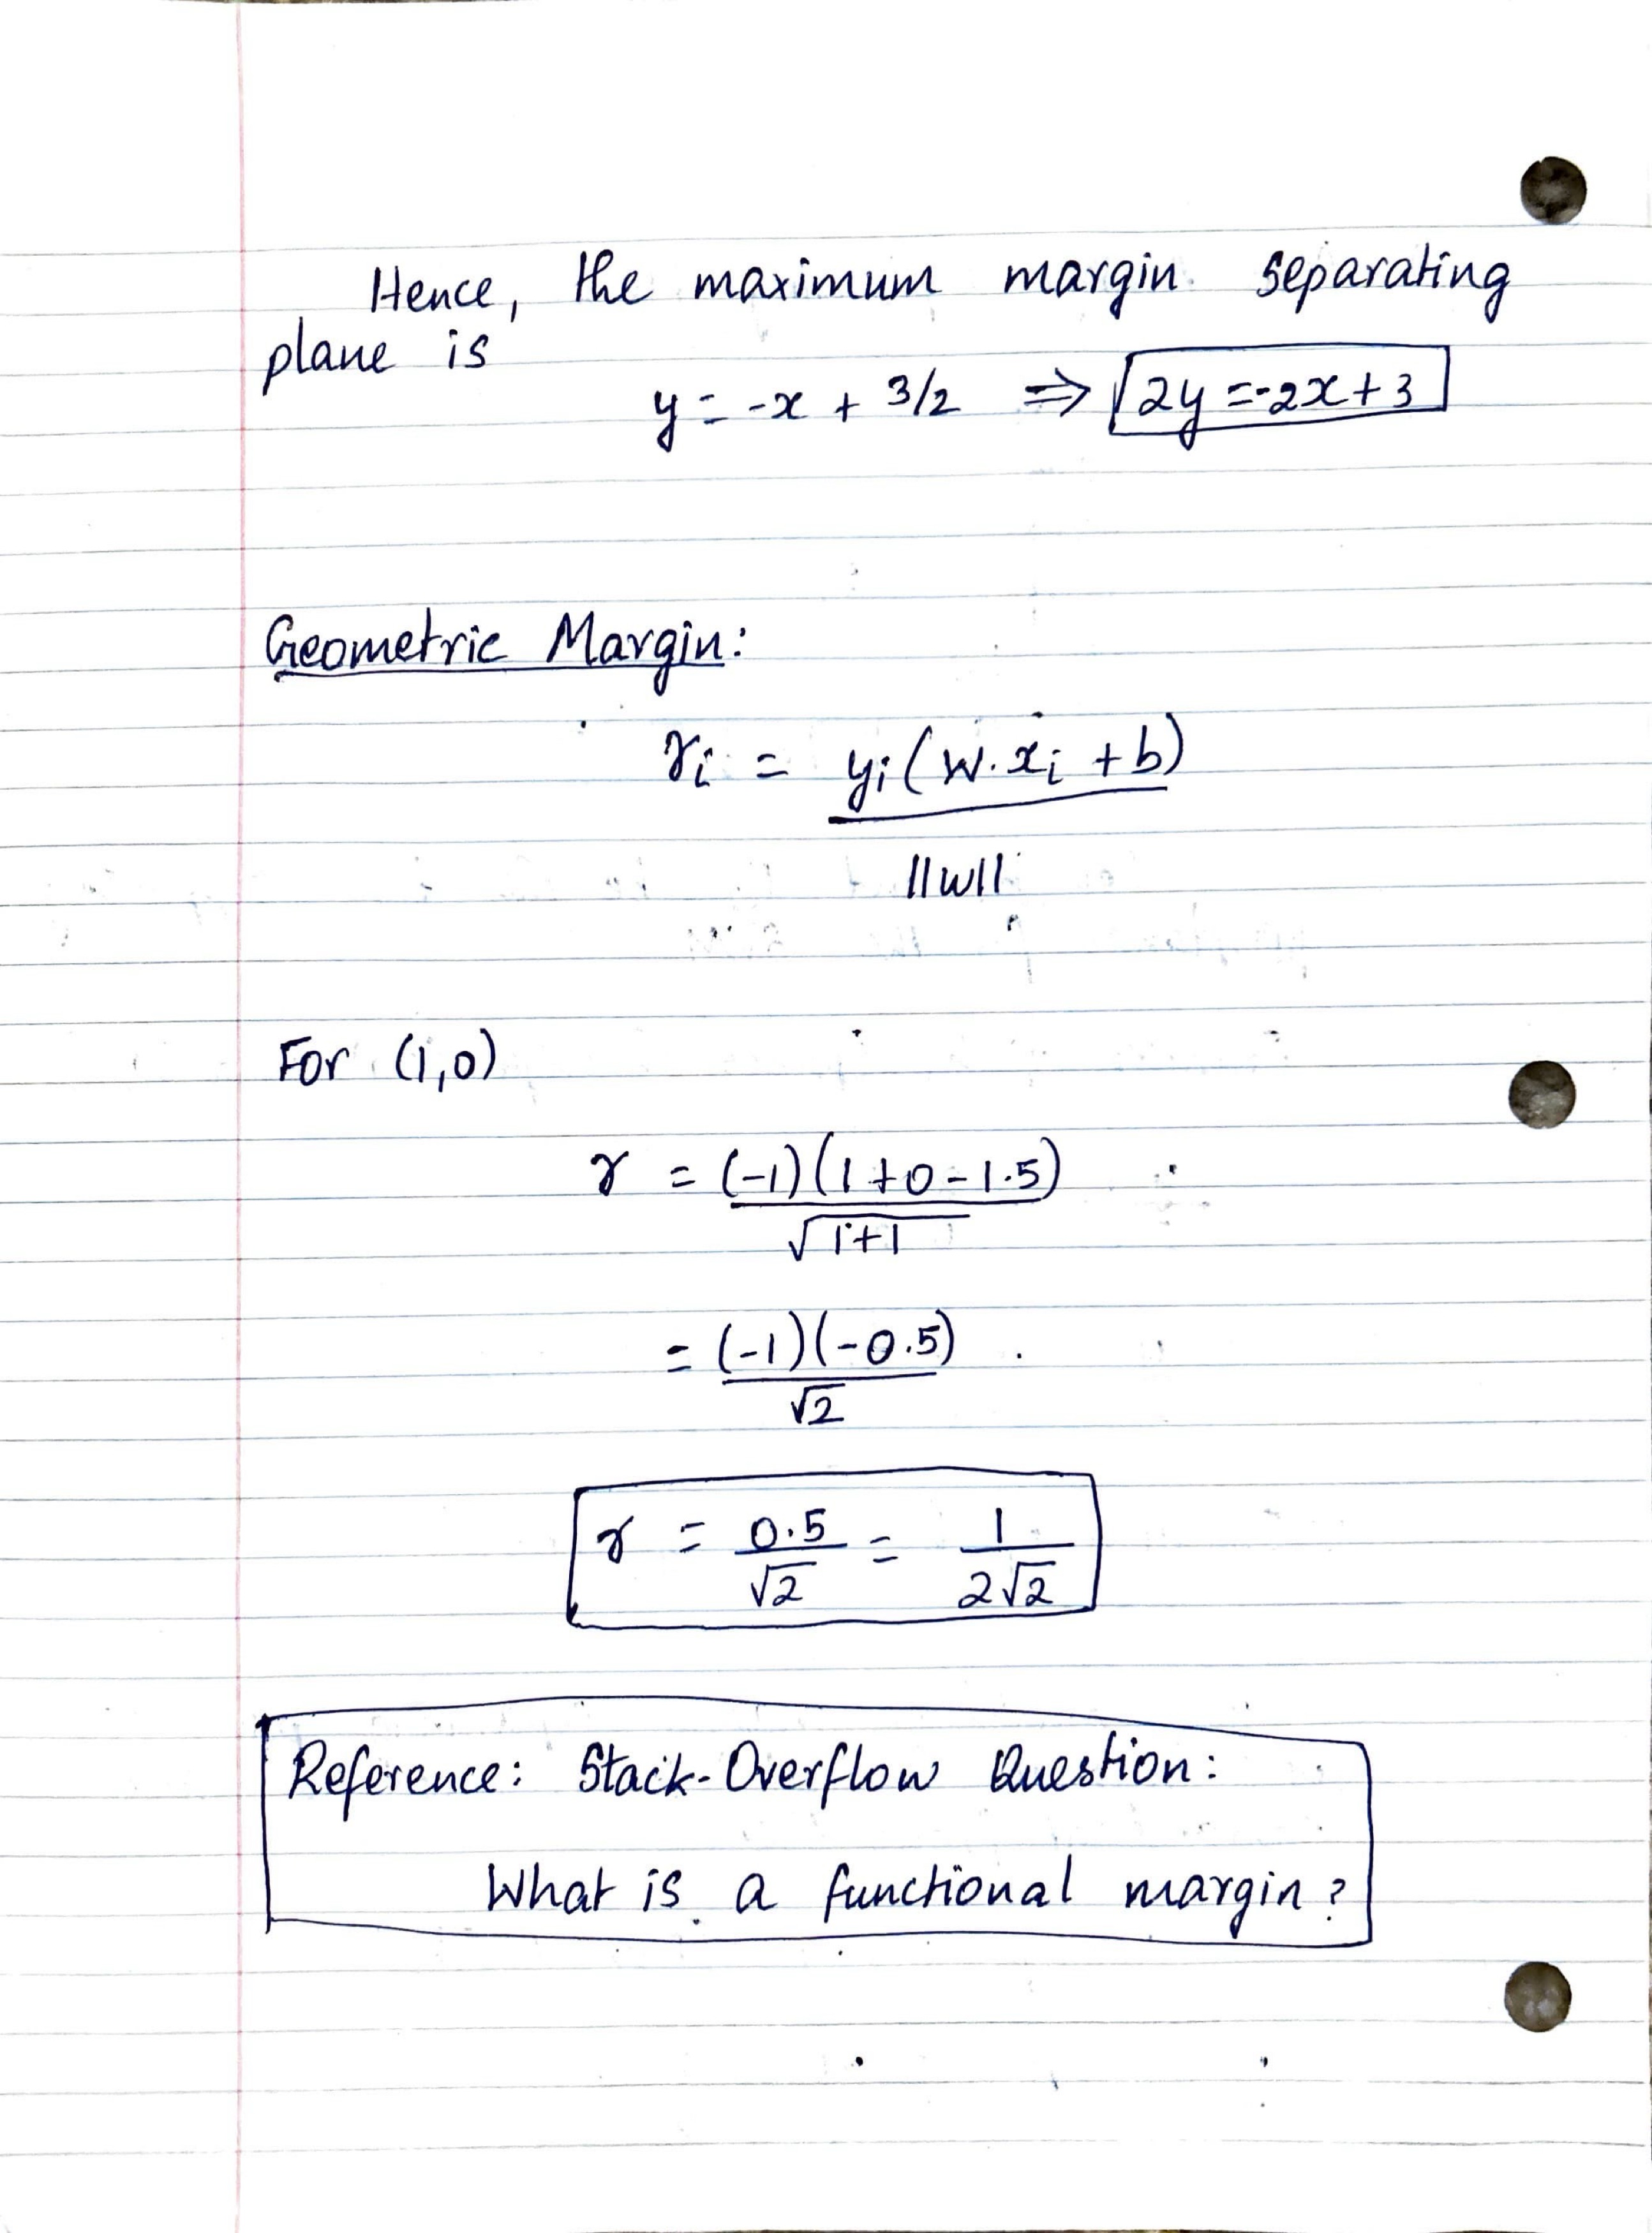 Hence, the maximum margin separating
plane is
y = -x + 3/2 ⇒ 2y = -2x + 3
Geometric Margin:
γi = yi(w.xi + b)
||w||
For (1,0)
γ = (-1)(1+0-1.5)
√1+1
= (-1)(-0.5)
√2
γ = 0.5/√2 = 1/2√2
Reference: Stack-Overflow Question:
What is a functional margin?